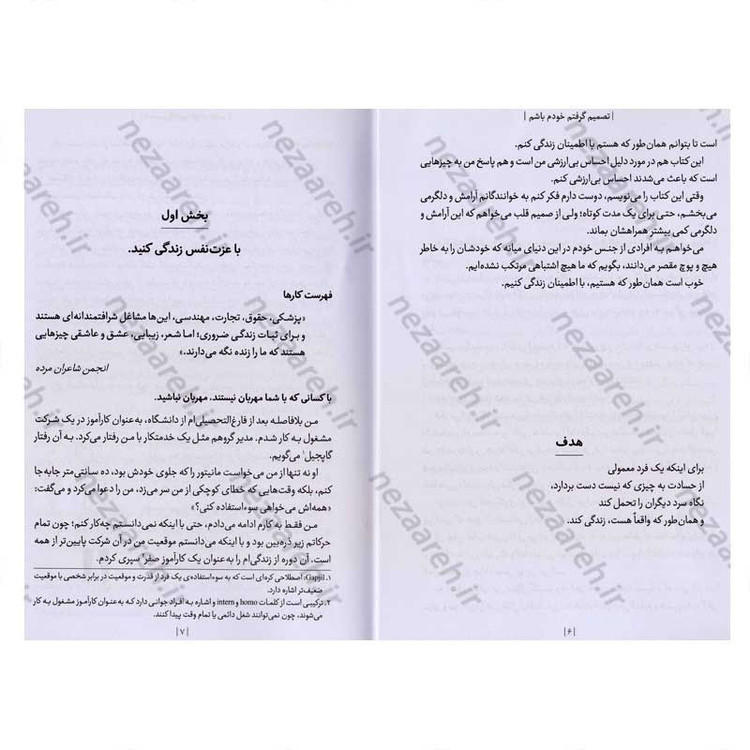 | تصمیم گرفتم خودم باشم |
است تا بتوانم همان‌طور که هستم با اطمینان زندگی کنم.
این کتاب هم در مورد دلیل احساس بی‌ارزشی من است و هم پاسخ من به چیزهایی
است که باعث می‌شدند احساس بی‌ارزشی کنم.
وقتی این کتاب را می‌نویسم، دوست دارم فکر کنم به خوانندگانم آرامش و دلگرمی
می‌بخشم، حتی برای یک مدت کوتاه؛ ولی از صمیم قلب می‌خواهم که این آرامش و
دلگرمی کمی بیشتر همراهشان بماند.
می‌خواهم به افرادی از جنس خودم در این دنیای میانه که خودشان را به خاطر
هیچ و پوچ مقصر می‌دانند، بگویم که ما هیچ اشتباهی مرتکب نشده‌ایم.
خوب است همان‌طور که هستیم، با اطمینان زندگی کنیم.
هدف
برای اینکه یک فرد معمولی
از حسادت به چیزی که نیست دست بردارد،
نگاه سرد دیگران را تحمل کند
و همان‌طور که واقعاً هست، زندگی کند.
| ۶ |
بخش اول
با عزت‌نفس زندگی کنید.
فهرست کارها
«پزشکی، حقوق، تجارت، مهندسی، این‌ها مشاغل شرافتمندانه‌ای هستند
و برای ثبات زندگی ضروری؛ اما شعر، زیبایی، عشق و عاشقی چیزهایی
هستند که ما را زنده نگه می‌دارند.»
انجمن شاعران مرده
با کسانی که با شما مهربان نیستند، مهربان نباشید.
من بلافاصله بعد از فارغ‌التحصیلی‌ام از دانشگاه، به‌عنوان کارآموز در یک شرکت
مشغول به کار شدم. مدیر گروهم مثل یک خدمتکار با من رفتار می‌کرد. به آن رفتار
گاپجیل۱ می‌گوییم.
او نه تنها از من می‌خواست مانیتور را که جلوی خودش بود، ده سانتی‌متر جابه‌جا
کنم، بلکه وقت‌هایی که خطای کوچکی از من سر می‌زد، من را دعوا می‌کرد و می‌گفت:
«همه‌اش می‌خواهی سوءاستفاده کنی؟»
من فقط به کارم ادامه می‌دادم، حتی با اینکه نمی‌دانستم چه‌کار کنم؛ چون تمام
حرکاتم زیر ذره‌بین بود و با اینکه می‌دانستم موقعیت من در آن شرکت پایین‌تر از همه
است، آن دوره از زندگی‌ام را به‌عنوان یک کارآموز صفر۲ سپری کردم.
۱. Gapjil: اصطلاحی کره‌ای است که به سوءاستفاده‌ی یک فرد از قدرت و موقعیت در برابر شخصی با موقعیت
ضعیف‌تر اشاره دارد.
۲. ترکیبی است از کلمات homo و intern و اشاره به افراد جوانی دارد که به‌عنوان کارآموز مشغول به کار
می‌شوند، چون نمی‌توانند شغل دائمی یا تمام وقت پیدا کنند.
| ۷ |
nezaareh.ir
nezaareh.ir
nezaareh.ir
nezaareh.ir
nezaareh.ir
nezaareh.ir
nezaareh.ir
nezaareh.ir
nezaareh.ir
nezaareh.ir
nezaareh.ir
nezaareh.ir